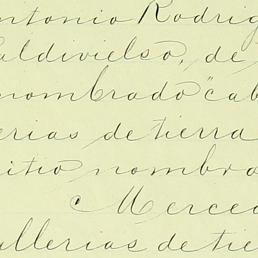 ntonio Rodrig
aldivielso, de
nombrado "cab
erias de tierra
itio nombra
Merced
llerias de tie